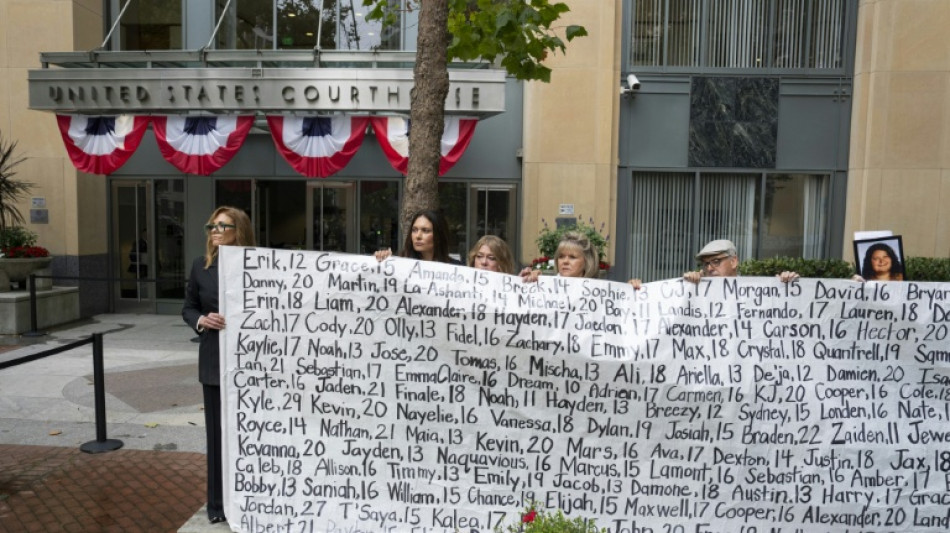 UNITED STATES COURTHOUSE
Erik, 12 Grace, 15 Amanda, 15 Brook, 14 Sophie, 13 CJ, 17 Morgan, 17 David, 16 Bryan
Danny, 20 Martin, 19 La-Ashanti, 14 Michael, 20 Bay, 11 Landis, 12 Fernando, 17 Lauren, 18
Erin, 18 Liam, 20 Alexander, 18 Hayden, 17 Jaedon, 17 Alexander, 14 Carson, 16 Hector, 20
Zach, 17 Cody, 20 Olly, 13 Fidel, 16 Zachary, 18 Emmy, 17 Max, 18 Crystal, 18 Quantrell, 19
Kaylie, 17 Noah, 13 Jose, 20 Tomas, 16 Mischa, 13 Ali, 18 Ariella, 13 De'ja, 12 Damien, 20
Ian, 21 Sebastian, 17 EmmaClaire, 16 Dream, 10 Adrien, 17 Carmen, 16 KJ, 20 Cooper, 16 Cole,
Carter, 16 Jaden, 21 Finale, 18 Noah, 11 Hayden, 13 Breezy, 12 Sydney, 15 Londen, 16 Nate,
Kyle, 29 Kevin, 20 Nayelie, 16 Vanessa, 18 Dylan, 19 Josiah, 15 Braden, 22 Zaiden, 11
Royce, 14 Nathan, 21 Maia, 13 Kevin, 20 Mars, 16 Ava, 17 Dexton, 14 Justin, 18 Jax, 18
Kevanna, 20 Jayden, 13 Naquavious, 16 Marcus, 15 Lamont, 16 Sebastian, 16 Amber, 17
Caleb, 18 Allison, 16 Timmy, 13 Emily, 19 Jacob, 13 Damone, 18 Austin, 13 Harry, 17
Bobby, 13 Saniah, 16 William, 15 Chance, 19 Elijah, 15 Maxwell, 17 Cooper, 16 Alexander, 20
Jordan, 27 T'Saya, 15 Kalea, 17
Albert, 21 John, 20